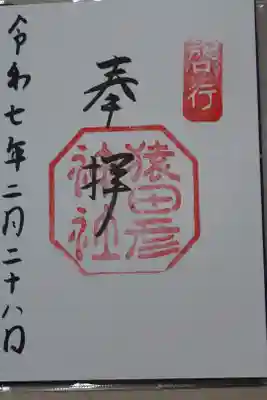 啓行
奉拝
猿田彦
神社
令和七年二月二十八日